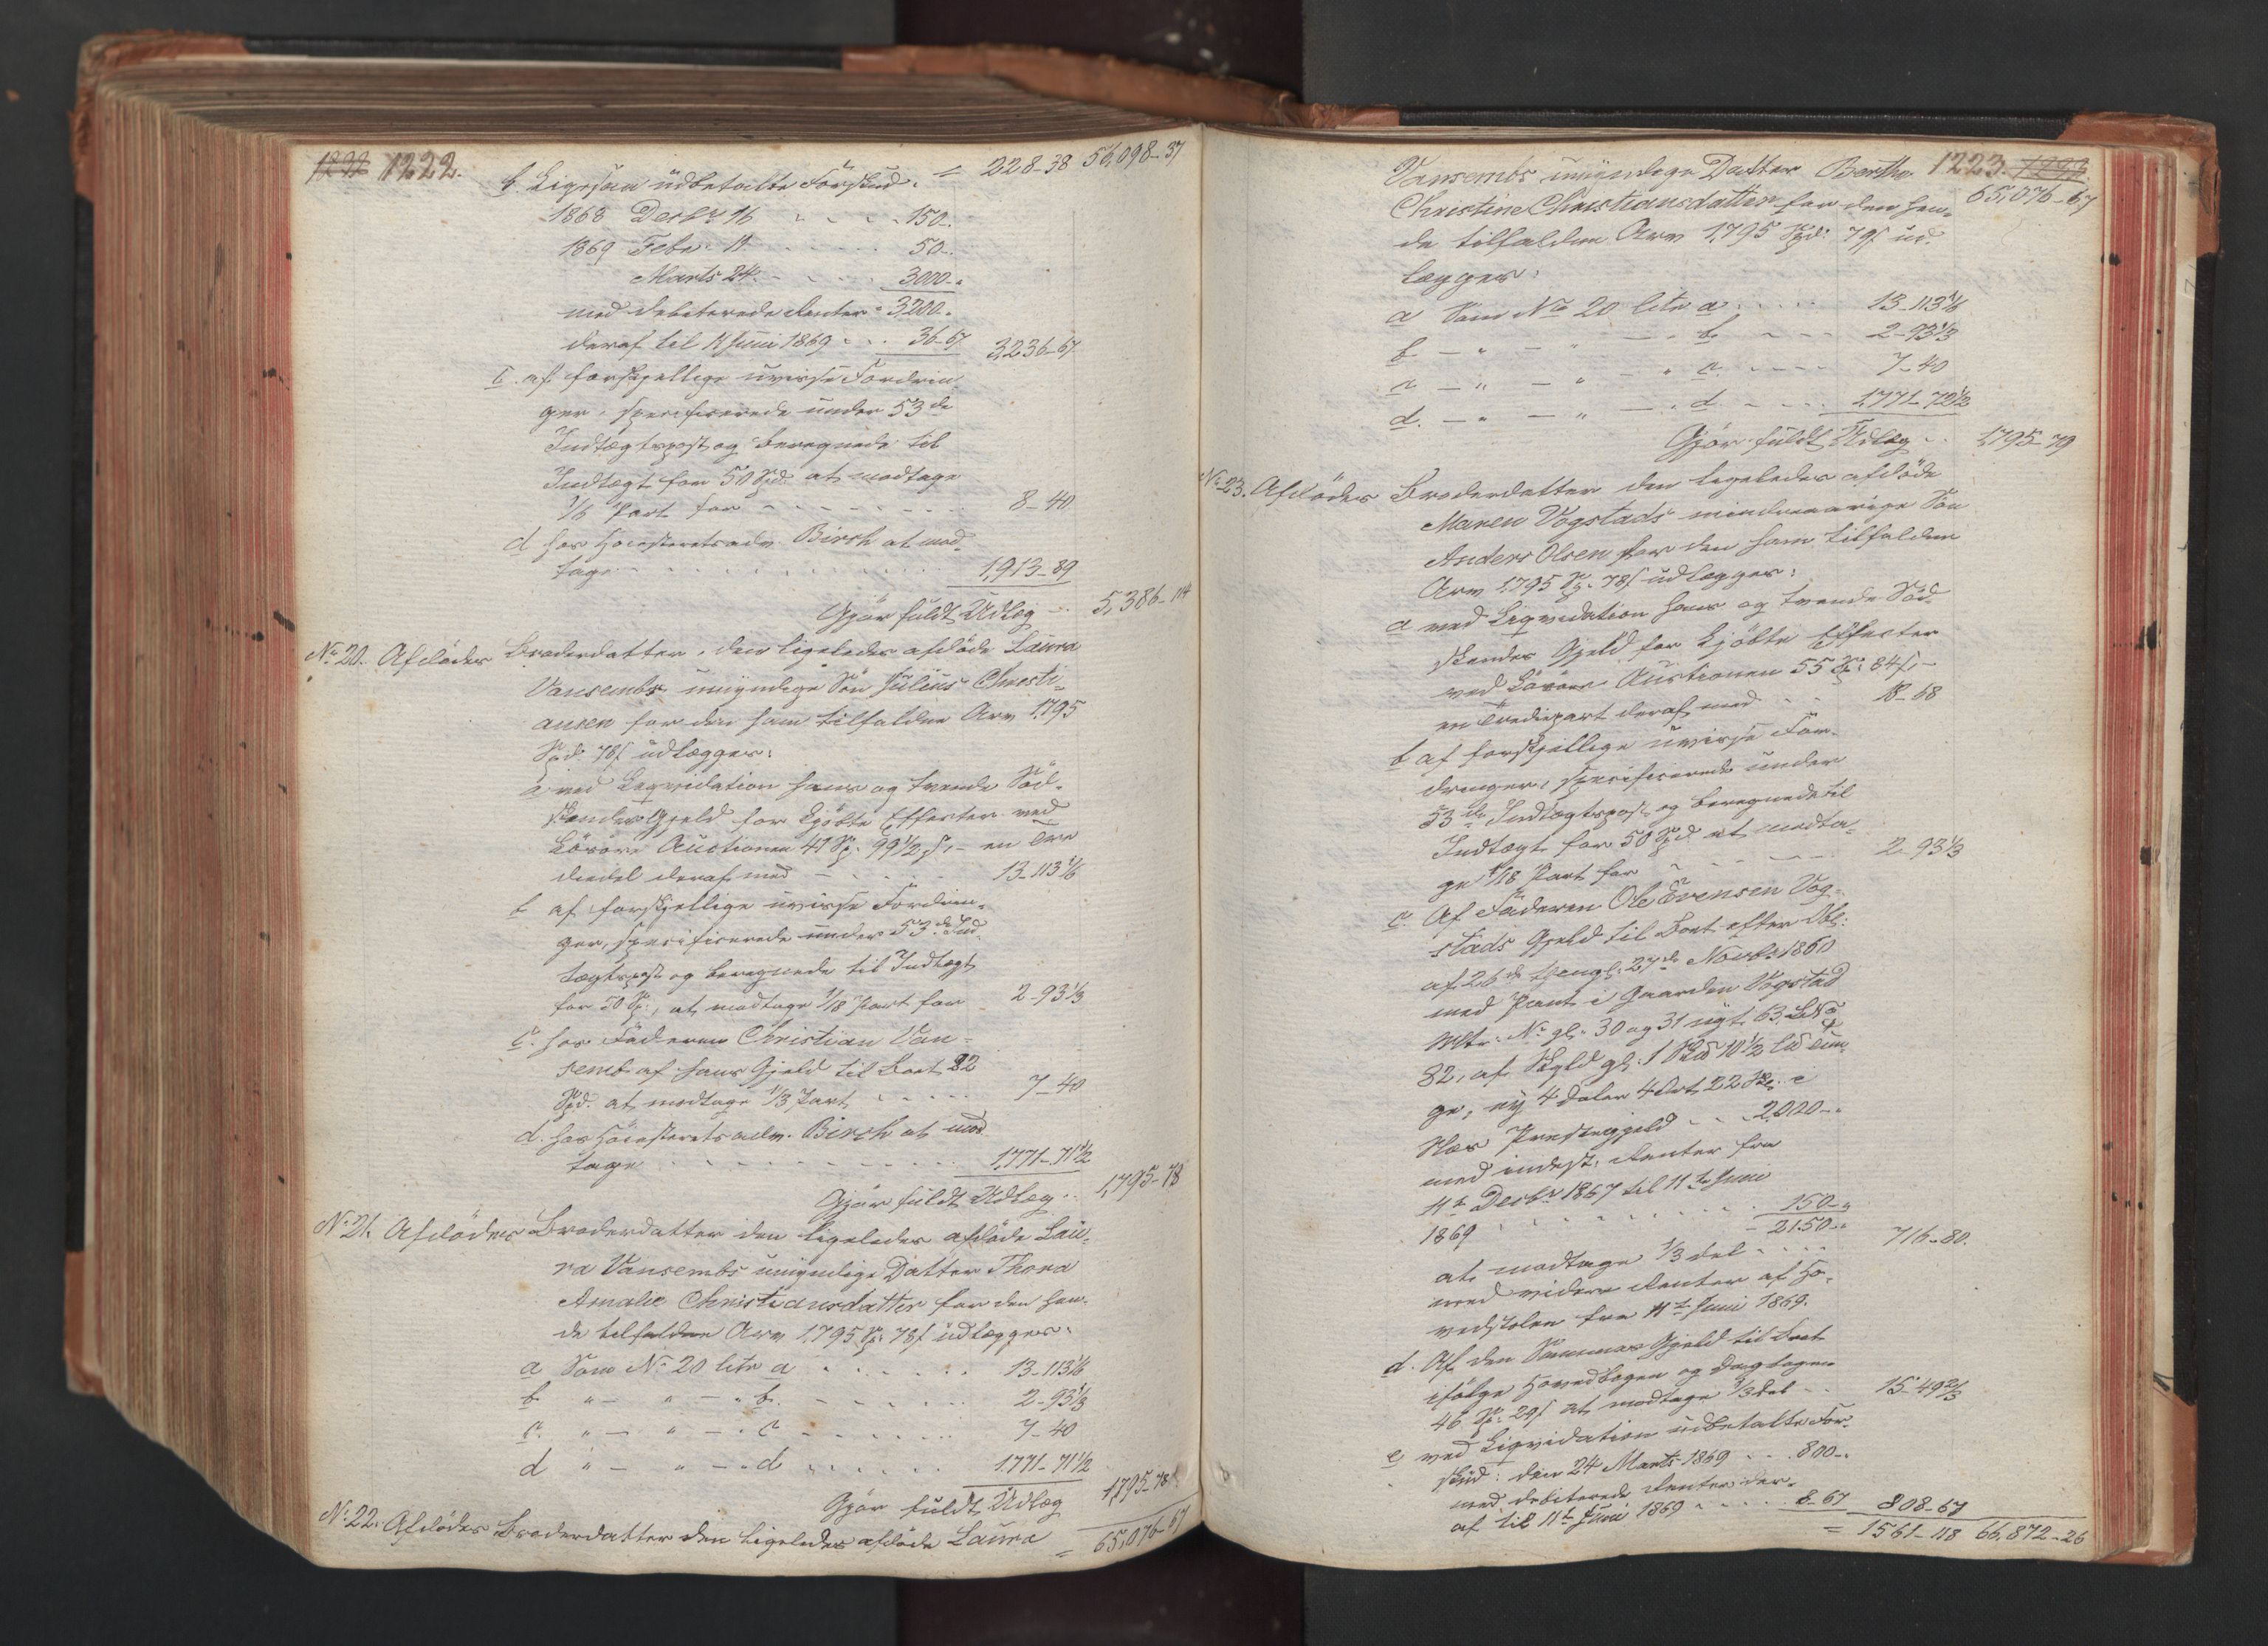 1222 1222.
= 228-38 56,098-37
b Ligesaa udbetalte Forskud:
1868 Decbr 16 150-.
1869 Febr. 11 50-.
Marts 24 3000-.
med debiterede Renter = 3200-.
deraf til 11 Juni 1869 36-67 3,236-67
c. af forskjellige uvisse Fordrin
ger, specificerede under 53de
Indtægtspost og beregnede til
Indtægt for 50 Spd. at modtage
1/6 Part for 8-40
d hos Høiesteretsadv. Birch at mod-
tage 1,913-89
Gjør fuldt Udlæg 5,386-114
No 20. Afdødes Broderdatter, den ligeledes afdøde Laura
Vansembs umyndige Søn Julius Christi-
ansen for den ham tilfaldne Arv 1,795
Spd. 78 s udlægges:
a ved Liqvidation hans og tvende Sød-
skendes Gjeld for kjøbte Effecter ved
Løsøre Auctionen 41 Sp. 99 1/2 s, - en Tre
diedel deraf med 13-113 1/6
b af forskjellige uvisse Fordrin-
ger, specificerede under 53de Ind-
tægtspost og beregnede til Indtægt
for 50 Sp., at modtage 1/18 Part for 2-93 1/3
c. hos Faderen Christian Van-
semb af hans Gjeld til Boet 22
Spd. at modtage 1/3 Part 7-40
d. hos Høiesteretsadv. Birch at mod
tage 1,771-71 1/2
Gjør fuldt Udlæg 1,795-78
No 21. Afdødes Broderdatter den ligeledes afdøde Lau-
ra Vansembs umyndige Datter Thora
Amalie Christiansdatter for den hen-
de tilfaldne Arv 1,795 Sp. 78 s udlægges:
a Som No 20 litr a 13-113 1/6
b. " - " - " b. 2-93 1/3
c. " - " - " c 7-40
d " - " - " d 1771-71 1/2
Gjør fuldt Udlæg 1,795-78
No 22. Afdødes Broderdatter den ligeledes afdøde Laura = 65,076-67
1223. 1223.
Vansembs umyndige Datter Berthe
65,076-67
Christine Christiansdatter for den hen-
de tilfaldne Arv 1,795 Spd: 79 s ud-
lægges:
a Som No 20 litr a 13-113 1/6
b. - " - " - b. 2-93 1/3
c - " - " - " c. 7-40
d. - " - " - " d 1,771-72 1/2
Gjør fuldt Udlæg 1,795-79
No 23. Afdødes Broderdatter den ligeledes afdøde
Maren Vogstads mindreaarige Søn
Anders Olsen for den ham tilfaldne
Arv 1,795 Sp. 78 s udlægges:
a ved Liqvidation hans og tvende Sød-
skendes Gjeld for kjøbte Effecter
ved Løsøre Auctionen 55 Sp: 84 s, -
en Trediepart deraf med 18-68
b af forskjellige uvisse For-
dringer, specificerede under
53de Indtægtspost og beregnede til
Indtægt for 50 Spd at modta-
ge 1/18 Part for 2-93 1/3
c. Af Faderen Ole Evensen Vog-
stads Gjeld til Boet efter Obl:
af 26de thingl. 27de Novbr 1860
med Pant i Gaarden Vogstad
Mtr. No gl. 30 og 31 nyt 63, LNo
82, af Skyld gl. 1 Skd 10 1/2 Ld Tun-
ge, ny 4 Daler 4 Ort 22 Sk. i
Næs Præstegjeld 2,000-.
med indest. Renter fra
11te Decbr 1867 til 11te Juni
1869 150-.
= 2150-.
at modtage 1/3 del 716-80.
med videre Renter af Ho-
vedstolen fra 11te Juni 1869.
d. Af den Sammes Gjeld til Boet
ifølge Hovedbogen og Dagbogen
46 Sp. 29 s at modtage 1/3 del 15-49 2/3
e ved Liqvidation udbetalte For-
skud: den 24 Marts 1869 800-.
med debiterede Renter der-
af til 11te Juni 1869 8-67 808-67
= 1561-118 66,872-26